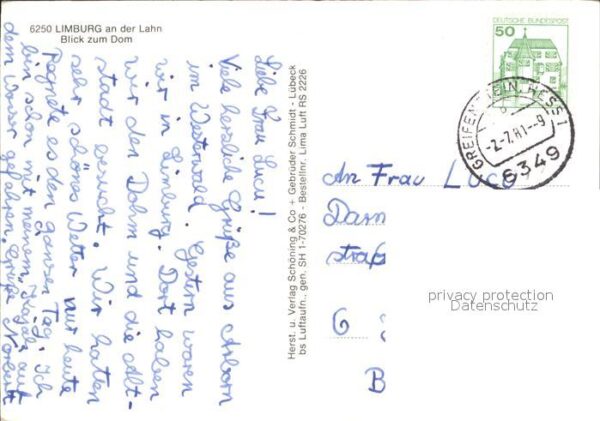 6250 LIMBURG an der Lahn
Blick zum Dom
Liebe Frau Lucu!
Viele herzliche Grüße aus Arborn
im Westerwald. Gestern waren
wir in Limburg. Dort haben
wir den Dohm und die Alt-
stadt besucht. Wir hatten
sehr schönes Wetter nur heute
regnete es den ganzen Tag. Ich
bin schon mit meinem Kajak auf
dem Wasser gefahren. Grüße Norbert
Herst. u. Verlag Schöning & Co + Gebrüder Schmidt - Lübeck
bs Luftaufn., gen. SH 1-70276 - Bestellnr. Lima Luft RS 2226
DEUTSCHE BUNDESPOST
50
GREIFENSTEIN, HESS 1
b
-2.-7.81.-9
6349
An Frau
Darm
straß
6
B
privacy protection
Datenschutz